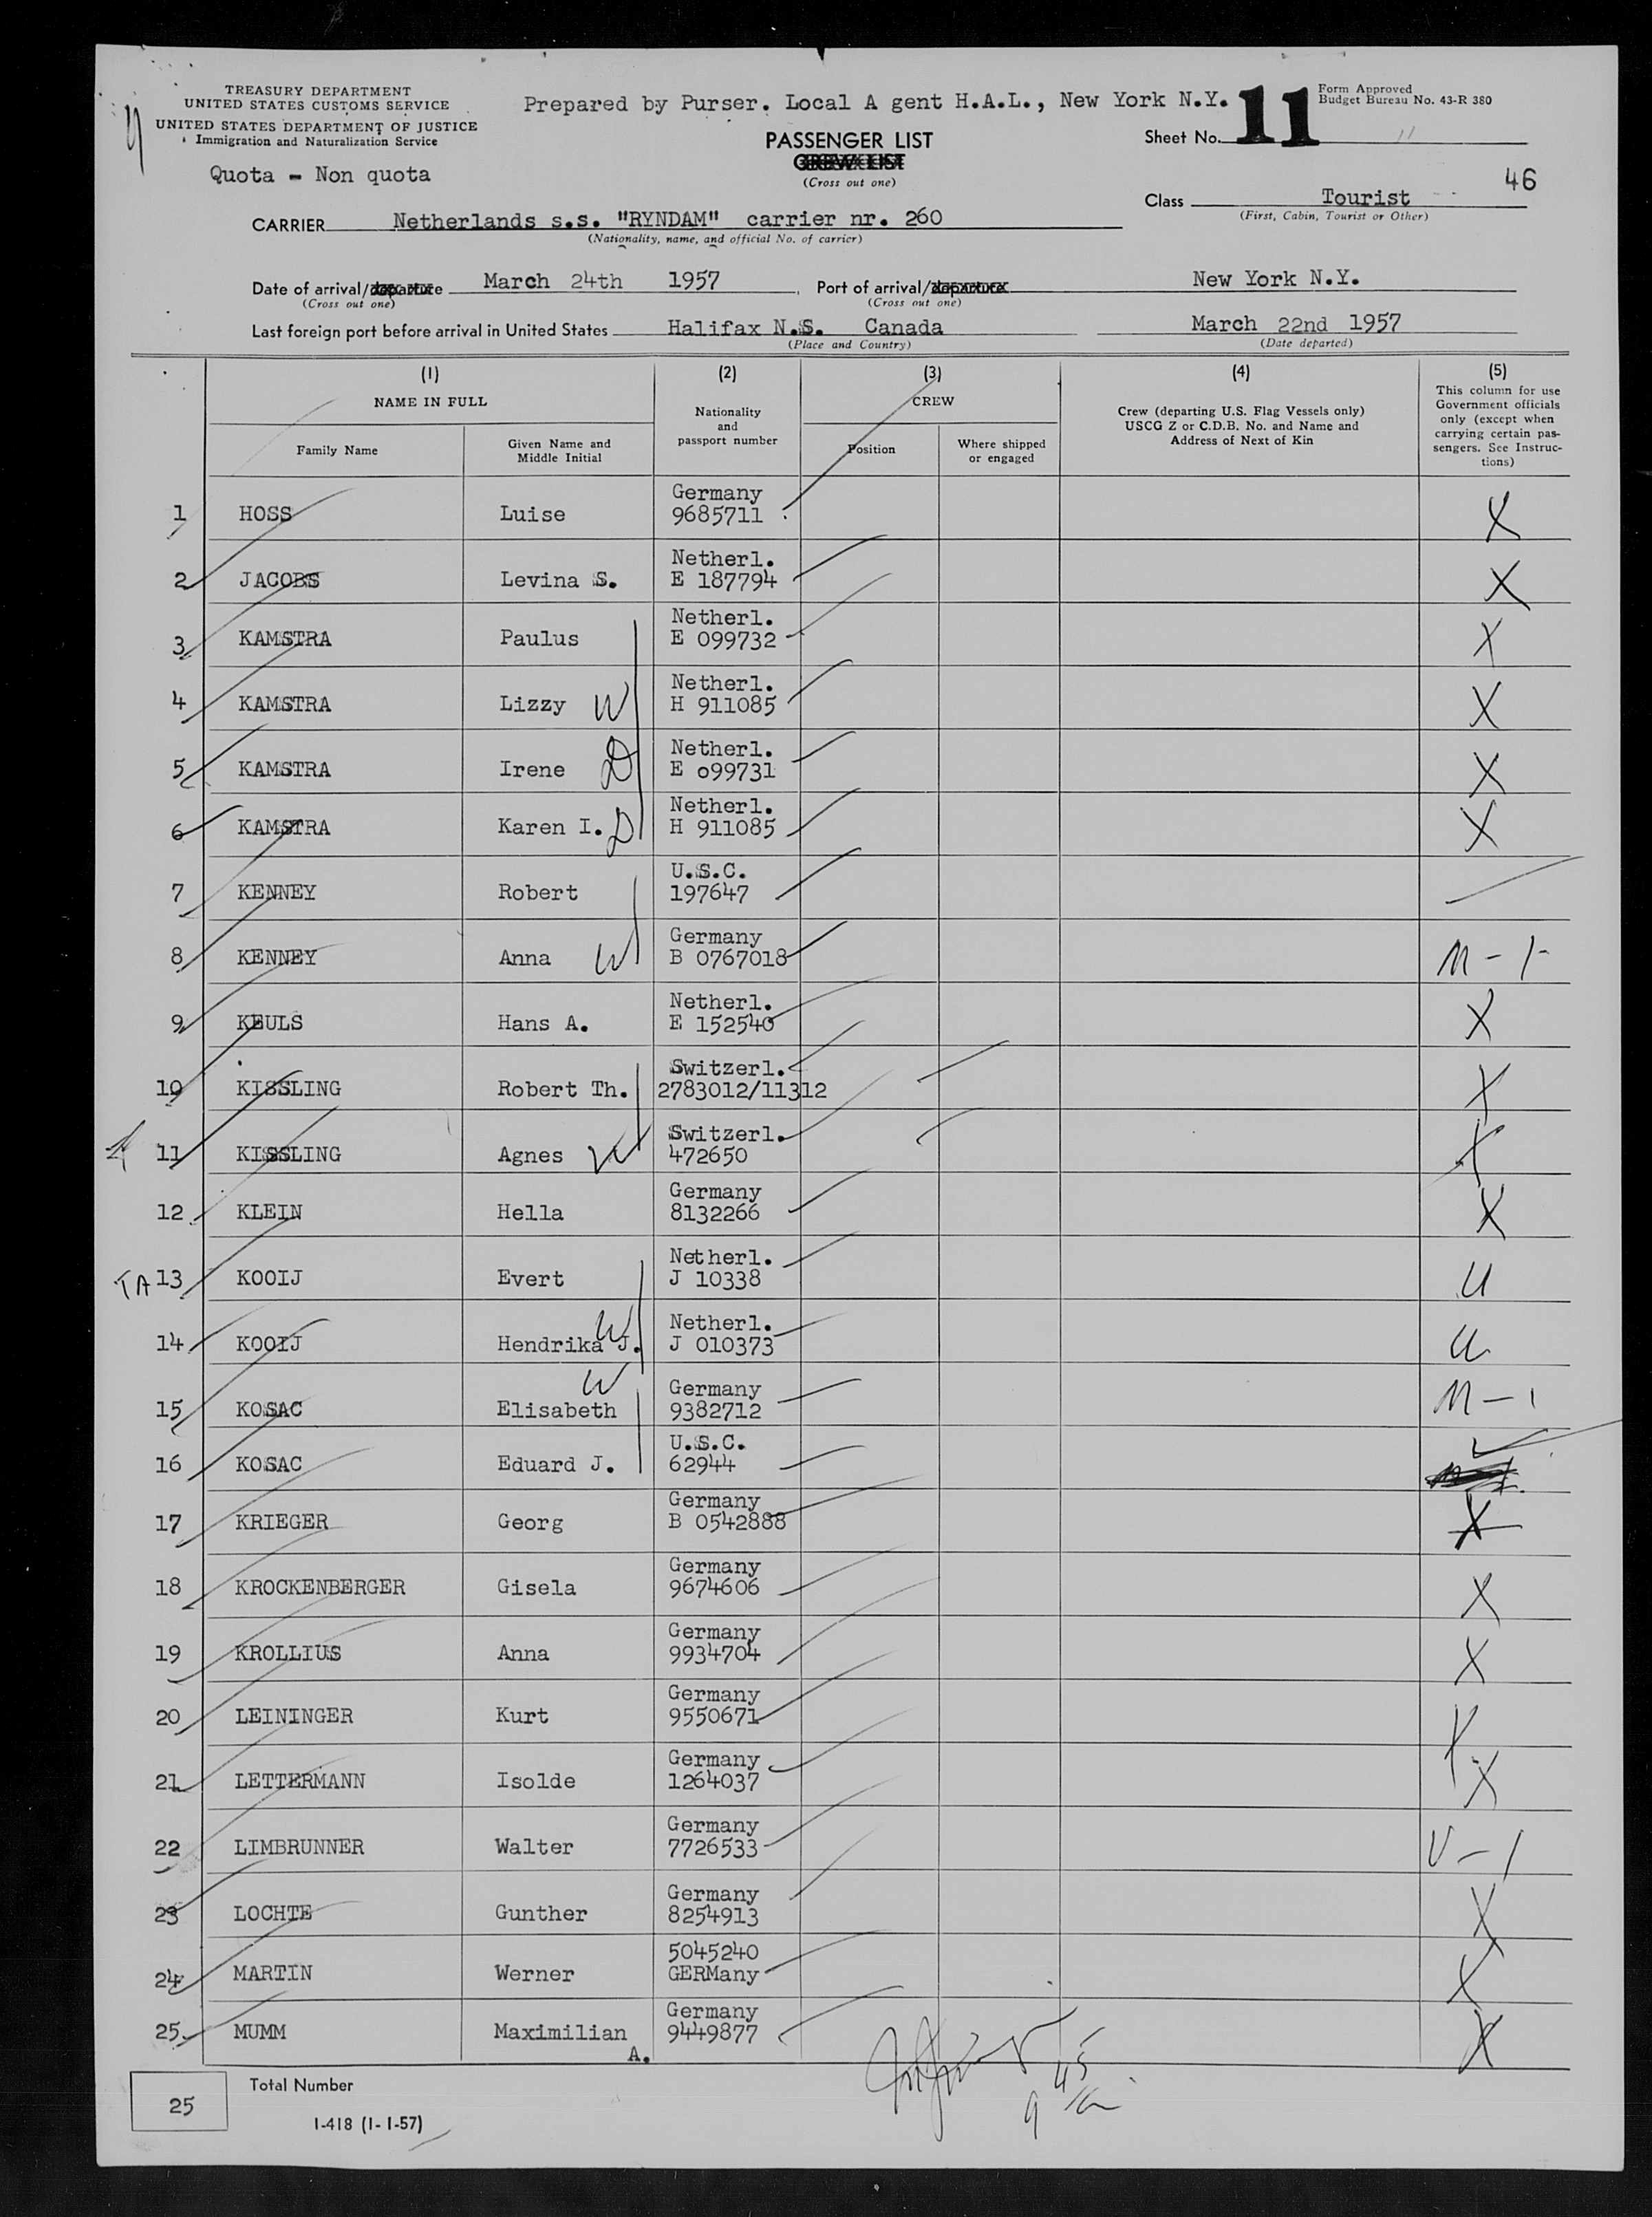 TREASURY DEPARTMENT
UNITED STATES CUSTOMS SERVICE
UNITED STATES DEPARTMENT OF JUSTICE
Immigration and Naturalization Service
Quota - Non quota
Prepared by Purser. Local A gent H.A.L., New York N.Y.
PASSENGER LIST
CREW LIST
(Cross out one)
Form Approved
Budget Bureau No. 43-R 380
Sheet No. 11 11
46
Class Tourist
(First, Cabin, Tourist or Other)
CARRIER Netherlands s.s. "RYNDAM" carrier nr. 260
(Nationality, name, and official No. of carrier)
Date of arrival/departure March 24th 1957 Port of arrival/departure New York N.Y.
(Cross out one) (Cross out one)
Last foreign port before arrival in United States Halifax N.S. Canada March 22nd 1957
(Place and Country) (Date departed)
(1) (2) (3) (4) (5)
NAME IN FULL
Family Name
Given Name and
Middle Initial
Nationality
and
passport number
CREW
Position
Where shipped
or engaged
Crew (departing U.S. Flag Vessels only)
USCG Z or C.D.B. No. and Name and
Address of Next of Kin
This column for use
Government officials
only (except when
carrying certain pas-
sengers. See Instruc-
tions)
Germany
1 HOSS Luise 9685711 X
Netherl.
2 JACOBS Levina S. E 187794 X
Netherl.
3 KAMSTRA Paulus E 099732 X
Netherl.
4 KAMSTRA Lizzy W H 911085 X
Netherl.
5 KAMSTRA Irene D E o99731 X
Netherl.
6 KAMSTRA Karen I. D H 911085 X
U.S.C.
7 KENNEY Robert 197647
Germany
8 KENNEY Anna W B 0767018 M - 1
Netherl.
9 KEULS Hans A. E 152540 X
Switzerl.
10 KISSLING Robert Th. 2783012/11312 X
Switzerl.
11 KISSLING Agnes W 472650 X
Germany
12 KLEIN Hella 8132266 X
Netherl.
TA 13 KOOIJ Evert J 10338 U
Netherl.
14 KOOIJ Hendrika J. W J 010373 U
Germany
15 KOSAC Elisabeth W 9382712 M - 1
U.S.C.
16 KOSAC Eduard J. 62944
Germany
17 KRIEGER Georg B 0542888 X
Germany
18 KROCKENBERGER Gisela 9674606 X
Germany
19 KROLLIUS Anna 9934704 X
Germany
20 LEININGER Kurt 9550671 X
Germany
21 LETTERMANN Isolde 1264037 X
Germany
22 LIMBRUNNER Walter 7726533 V - 1
Germany
23 LOCHTE Gunther 8254913 X
5045240
24 MARTIN Werner GERMany X
Germany
25 MUMM Maximilian 9449877 X
A.
25 Total Number
I-418 (1-1-57)
9 45